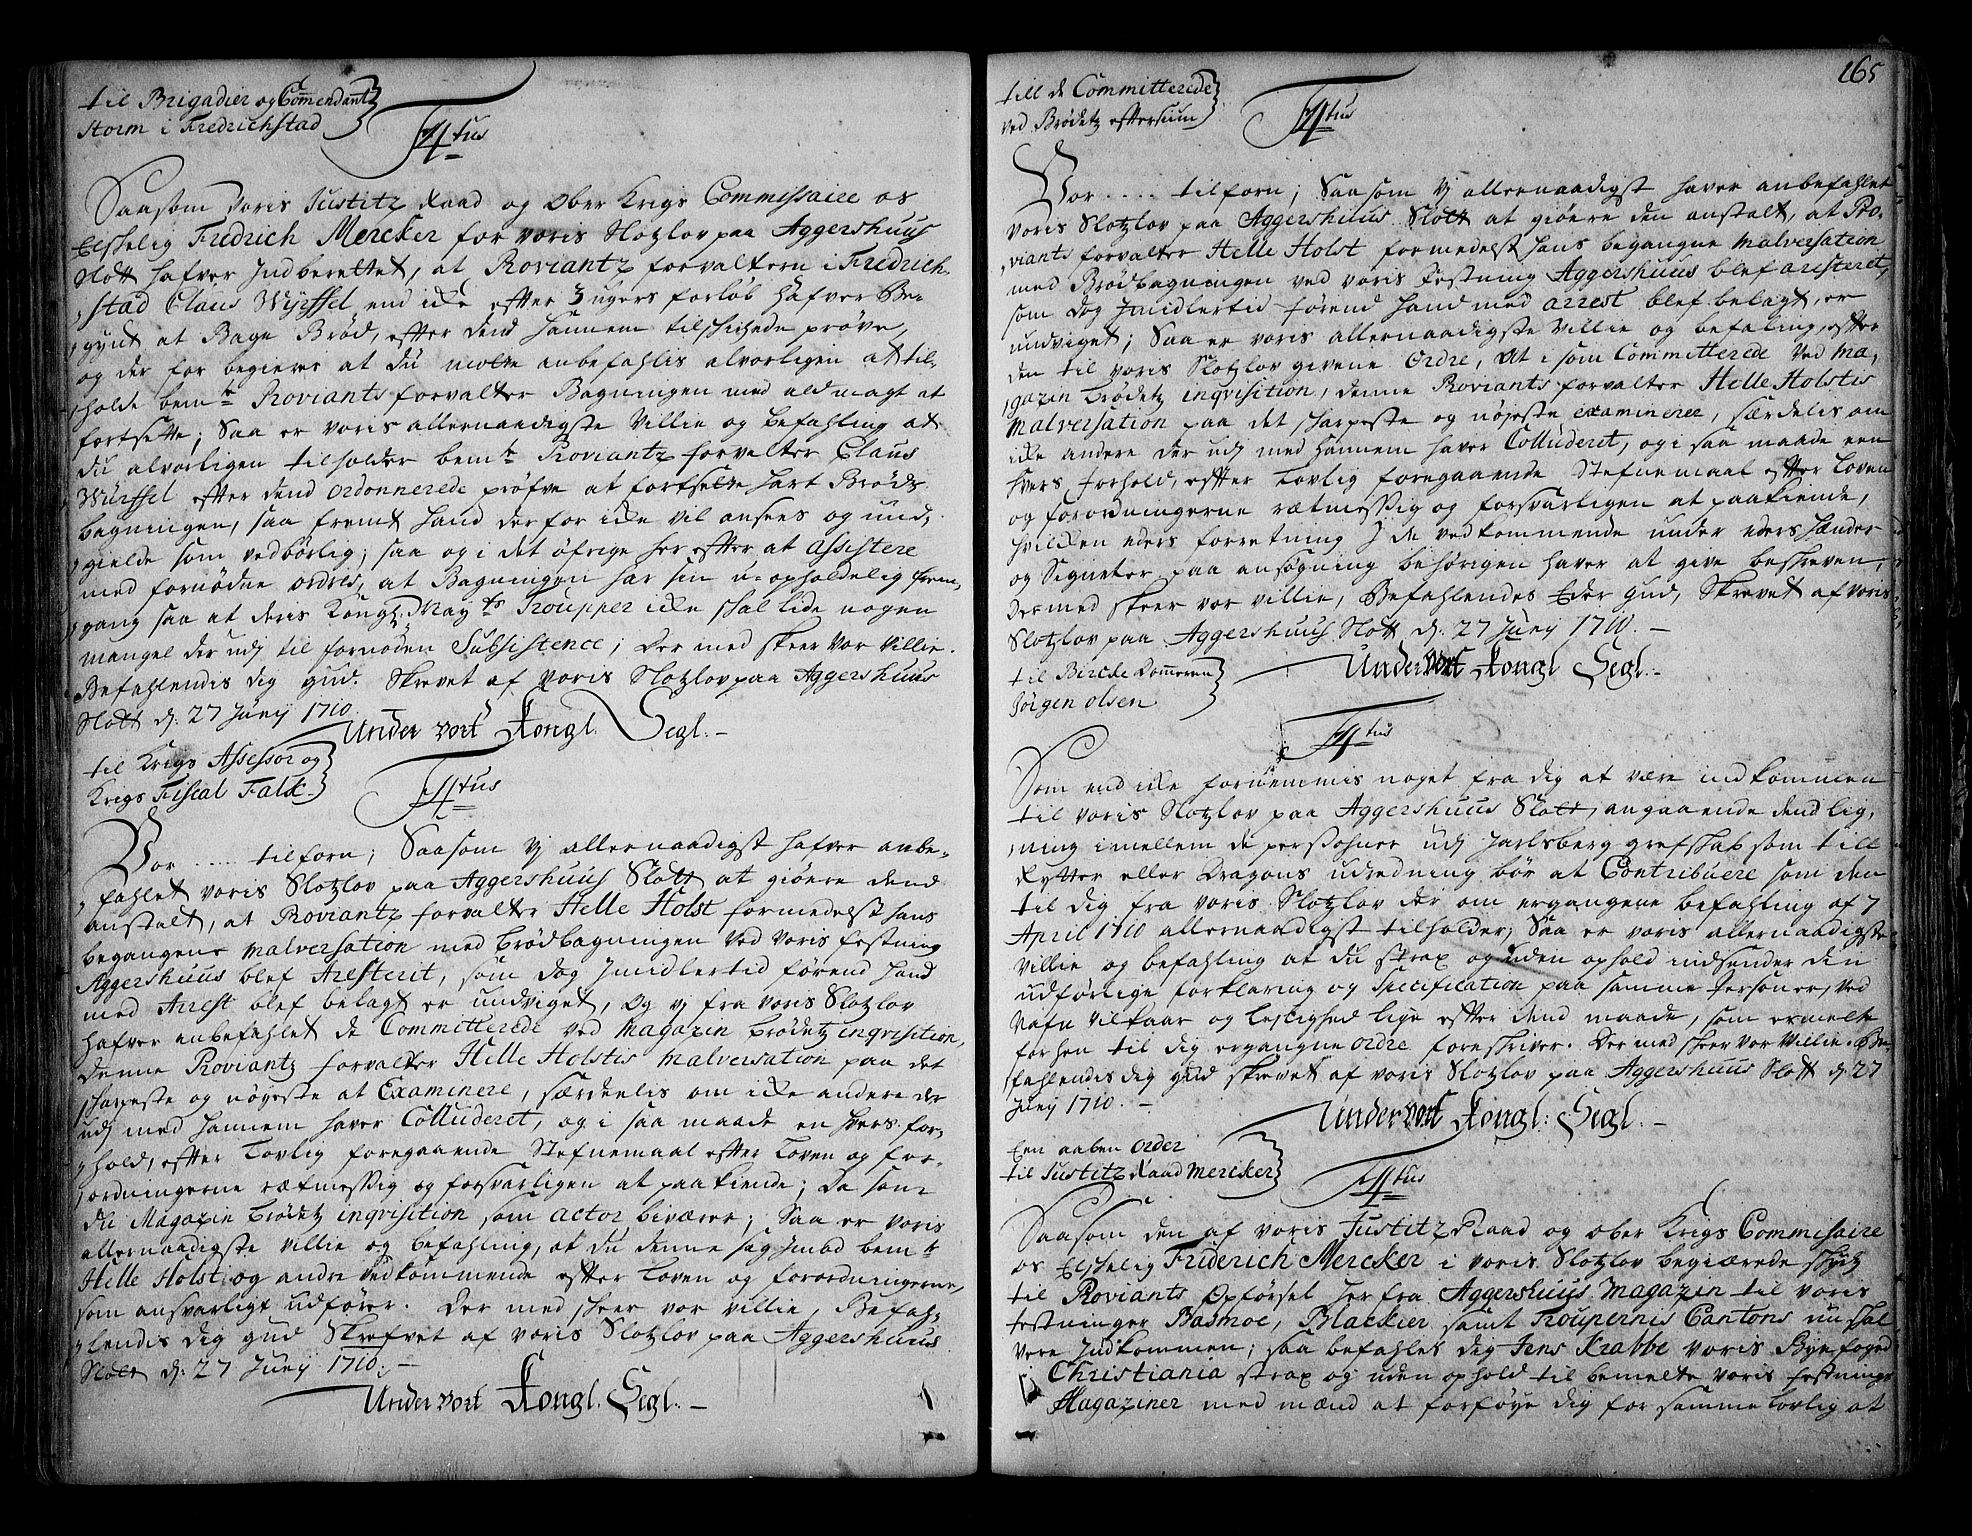 til Brigadier og Com̄endant
Storm i Fredrichstad
F4tus
Saasom Voris Justitz Raad og Ober Krigs Commissaire os
Elskelig Fredrich Mercker for voris Slotzlov paa Aggershuus
Slott hafver Indberettet, at Proviantz forvaltern i Fredrich-
stad Claus Würffel end icke efter 3 ugers forløb hafver Be-
gynt at Bage Brød, efter dend hannem tilschichede prøve,
og der for begierer at du motte anbefahlis alvorligen at til-
holde bemte Proviants forvalter Bagningen med ald magt at
fortsette; Saa er voris allernaadigste Villie og befahling at
du alvorligen tilholder bemte Proviantz forvalter Claus
Würffel efter dend ordonnerede prøfve at fortsette hart Brødz
bagningen, saa fremt hand derfor icke vil ansees og und-
gielde som vedbørlig; saa og i det øfrige her efter at assistere
med fornødne ordres, at Bagningen har sin u-opholdelig frem-
gang saa at deris Kongl. Mayts Troupper icke skal lide nogen
mangel der udj til fornøden Subsistence; Der med skeer vor Villie.
Befahlendis dig Gud. Skrevet af voris Slotzlov paa Aggershuus
Slott d: 27 Junij 1710.
Under vort Kongl. Segl.-
til Krigs Assessor og
Krigs Fiscal Falck
F4tus
Vor .... tilforn; Saasom Vj allernaadigst hafver anbe-
fahlet voris Slotzlov paa Aggershuus Slott at giøere dend
anstalt, at Proviantz forvalter Helle Holst formedelst hans
begangne malversation med brødbagningen ved voris festning
Aggershuus blef Aresterit, som dog Imidlertid førend hand
med Arrest blef belagt er undviget, og vj fra voris Slotzlov
hafver anbefahlet de Committerede ved magazin brødetz inqvisition,
denne Proviantz forvalter Helle Holstes malversation paa det
skarpeste og nøyeste at Examinere, særdelis om icke andere der
udj med hannem haver Colluderet, og i saa maade en hvers for-
hold, efter Lovlig foregaaende Stefnemaal efter Loven og for-
ordningerne retmessig og forsvarligen at paakiende; Da som
du Magazin brødetz inqvisition som actor biværer; Saa er voris
allernaadigste villie og befahling, at du denne sag Imod bemte
Helle Holst og andre vedkommende efter Loven og forordningerne,
som ansvarligt udfører. Der med skeer vor villie, Befah-
lendis dig Gud Skrefvet af voris Slotzlov paa Aggershuus
Slott d: 27 Junij 1710.-
Under vort Kongl. Segl.-
165
till de Committerede
ved Brødetz eftersiun
F4tus
Vor .... tilforn; Saasom Vj allernaadigst haver anbefahlet
voris Slotzlov paa Aggershuus Slott at giøere den anstalt, at Pro-
viants forvalter Helle Holst formedelst hans begangne malversation
med Brødbagningen ved voris festning Aggershuus blef aresteret,
som dog Imidlertid førend hand med arrest blef belagt, er
undviget; Saa er voris allernaadigste Villie og befaling, efter
den til voris Slotzlov givene Ordre, At i som Committerede ved ma-
gazin brødetz inqvisition, denne Proviants forvalter Helle Holstis
malversation paa det skarpeste og nøyeste examinerer, særdelis om
icke andere der udj med hannem haver Colluderet, og i saa maade een
hvers forhold, efter Lovlig foregaaende Stefnemaal efter Loven
og forordningerne rætmessig og forsvarligen at paakiende,
hvilcken eders forretning I de vedkommende under eders hænder
og Signeter paa ansøgning behørigen haver at give beskreven,
Der med skeer vor villie, Befahlendes Eder Gud, Skrevet af voris
Slotzlov paa Aggershuus Slott d: 27 Junij 1710.-
Under vort Kongl Segl.-
til Birckedommeren
Jørgen olsen
F4tus
Som end icke fornemmis noget fra dig at være indkommen
til voris Slotzlov paa Aggershuus Slott, angaaende dend lig-
ning imellem de persohner udj Jarlsberg grefskab som till
Rytter eller Dragons udredning bør at Contribuere som den
til dig fra voris Slotzlov der om ergangene befahling af 7
April 1710 allernaadigst tilholder; Saa er voris allernaadigste
villie og befahling at du strax og uden ophold indsender den
udførlige forklaring og Specification paa samme personer, ved
Nafn vilkaar og Leylighed lige efter dend maade, som ermelte
forhen til dig ergangne ordre foreskriver. Der med skeer vor Villie. Be-
fahlendis dig Gud skrevet af voris Slotzlov paa Aggershuus Slott d: 27
Junij 1710.-
Under vort Kongl: Segl.-
Een aaben order
til Justitz Raad Mercker
F4tus
Saasom den af voris Justitz Raad og ober Krigs Commissaire
os Elskelig Friderich Mercker i voris Slotzlov begiærede skyds
til Proviants Opførsel her fra Aggershuus magazin til voris
festninger Basmoe, Blackier samt Troupernis Cantons nu skal
være Indkommen; saa befahles dig Jens Krabbe voris Byefoged
Christiania strax og uden ophold til bemelte voris festnings
Magaziner med mænd at forføye dig for samme Lovlig at